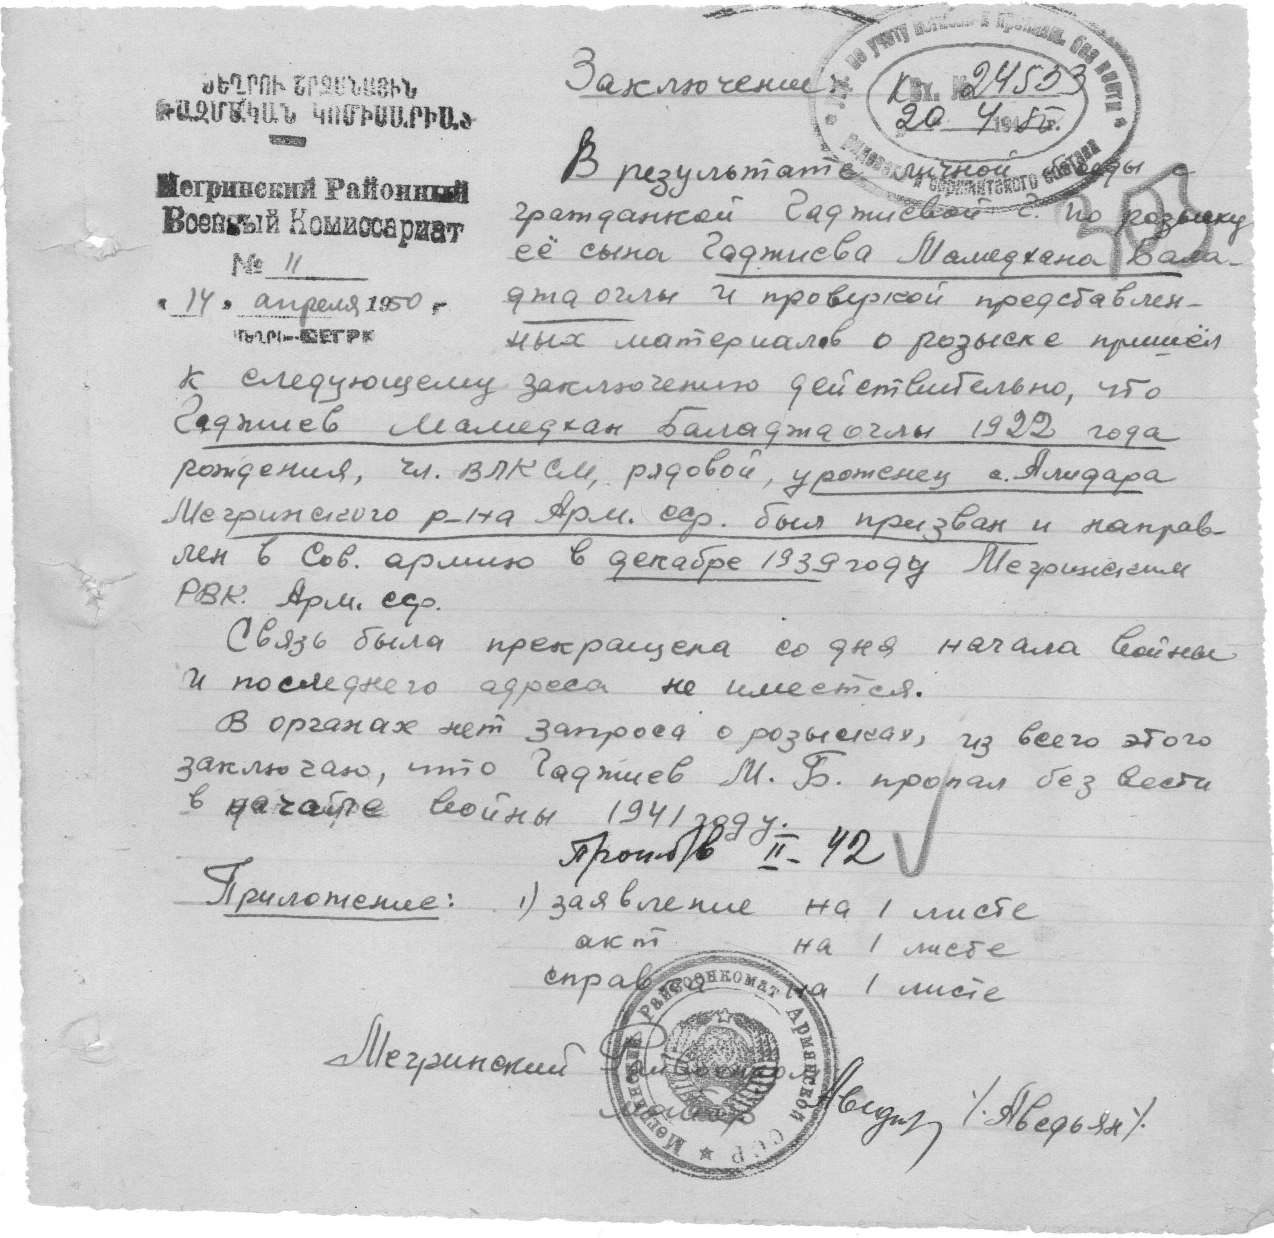 ՄԵՂՐՈՒ ՇՐՋԱՆԱՅԻՆ
ՌԱԶՄԱԿԱՆ ԿՈՄԻՍԱՐԻԱՏ
Мегринский Районный
Военный Комиссариат
№ 11
"14" апреля 1950 г.
ՄԵՂՐԻ—МЕГРИ
Заключение
по учету погибших и пропавш. без вести
рядового и сержантского состава
Вх. № 24533
20 4 1950г.
В результате личной беседы с
гражданкой Гаджиевой Г. по розыску
её сына Гаджиева Мамедхана Бала-
джа оглы и проверкой представлен-
ных материалов о розыске пришёл
к следующему заключению действительно, что
Гаджиев Мамедхан Баладжа оглы 1922 года
рождения, чл. ВЛКСМ, рядовой, уроженец с. Алидара
Мегринского р-на Арм. сср. был призван и направ-
лен в Сов. армию в декабре 1939 году Мегринским
РВК. Арм. сср.
Связь была прекращена со дня начала войны
и последнего адреса не имеется.
В органах нет запроса о розысках, из всего этого
заключаю, что Гаджиев М. Б. пропал без вести
в начале войны 1941 году.
Проп. б/в II - 42
Приложение: 1) заявление на 1 листе
акт на 1 листе
справка на 1 листе
Мегринский Райвоенком
майор /Аведьян/
Мегринский Райвоенкомат Армянской ССР